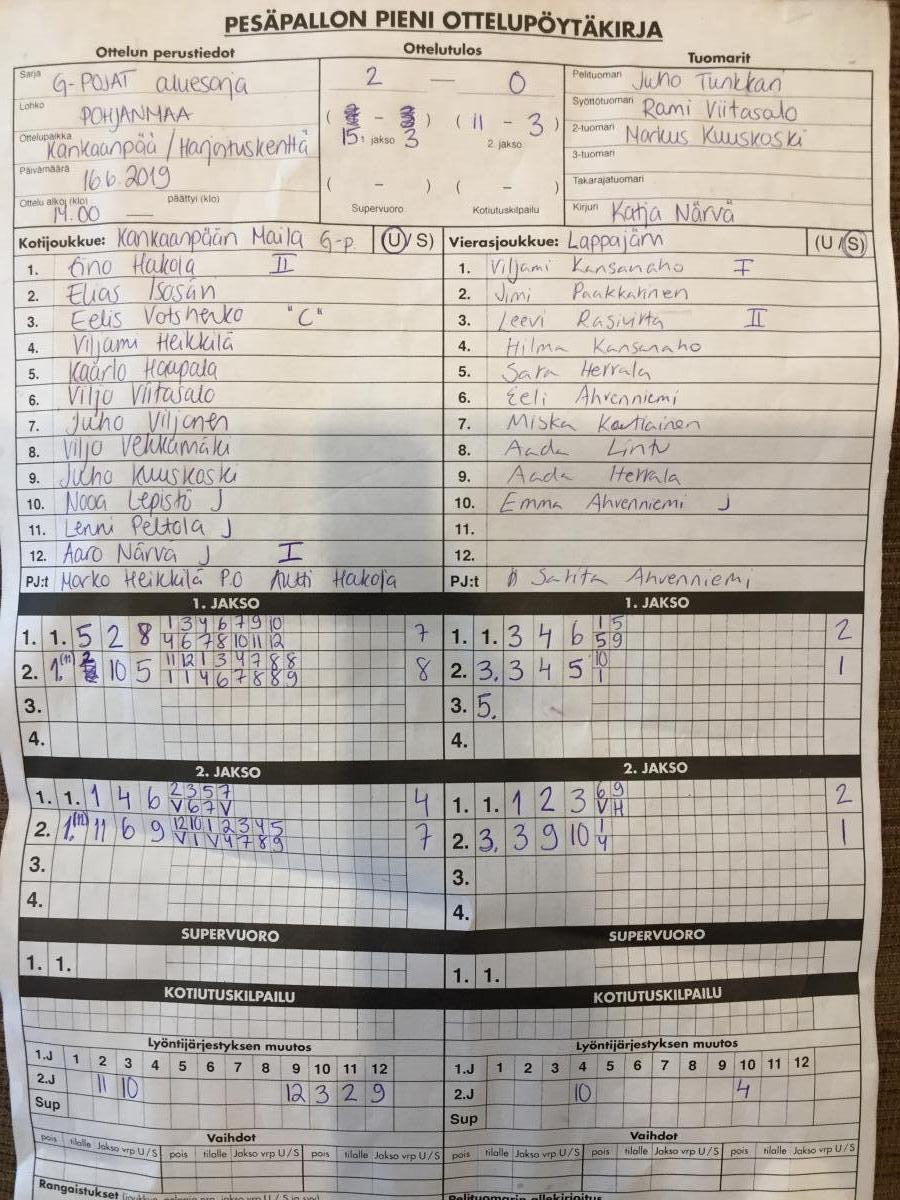 PESÄPALLON PIENI OTTELUPÖYTÄKIRJA
Ottelun perustiedot Ottelutulos Tuomarit
Sarja G-POJAT aluesarja 2 — 0 Pelituomari Juho Tunkkari
Lohko POHJANMAA Syöttötuomari Rami Viitasalo
( - ) ( 11 - 3 )
15 1. jakso 3 2. jakso
Ottelupaikka Kankaanpää / Harjoituskenttä 2-tuomari Markus Kuuskoski
3-tuomari
Päivämäärä 16.6.2019 ( - ) ( - ) Takarajatuomari
Ottelu alkoi (klo) 14.00 — päättyi (klo) Supervuoro Kotiutuskilpailu Kirjuri Katja Närvä
Kotijoukkue: Kankaanpään Maila G-p. (U/S) Vierasjoukkue: Lappajärvi (U/S)
1. Eino Hakola II 1. Viljami Kansanaho I
2. Elias Isosaari 2. Jimi Paakkarinen
3. Eelis Votshenko "C" 3. Leevi Rasivirta II
4. Viljami Heikkilä 4. Hilma Kansanaho
5. Kaarlo Haapala 5. Sara Herrala
6. Viljo Viitasalo 6. Eeli Ahvenniemi
7. Juho Viljanen 7. Miska Kortiainen
8. Viljo Vehkamäki 8. Aada Lintu
9. Juho Kuuskoski 9. Aada Herrala
10. Nooa Lepistö J 10. Emma Ahvenniemi J
11. Lenni Peltola J 11.
12. Aaro Närvä J I 12.
PJ:t Marko Heikkilä P.O Antti Hakola PJ:t Sarita Ahvenniemi
1. JAKSO 1. JAKSO
1. 1. 5 2 8 1 3 4 6 7 9 10 7 1. 1. 3 4 6 1 5 2
4 6 7 8 10 11 12 5 9
2. 1. (11) 2 10 5 11 12 1 3 4 7 8 8 8 2. 3. 3 4 5 10 1
1 1 4 6 7 8 8 9 1
3. 3. 5.
4. 4.
2. JAKSO 2. JAKSO
1. 1. 1 4 6 2 3 5 7 4 1. 1. 1 2 3 6 9 2
V 6 7 V V H
2. 1. (12) 11 6 9 12 10 1 2 3 4 5 7 2. 3. 3 9 10 1 1
V 1 V 4 7 8 9 4
3. 3.
4. 4.
SUPERVUORO SUPERVUORO
1. 1. 1. 1.
KOTIUTUSKILPAILU KOTIUTUSKILPAILU
Lyöntijärjestyksen muutos Lyöntijärjestyksen muutos
1.J 1 2 3 4 5 6 7 8 9 10 11 12 1.J 1 2 3 4 5 6 7 8 9 10 11 12
2.J 11 10 12 3 2 9 2.J 10 4
Sup Sup
Vaihdot Vaihdot
pois tilalle Jakso vrp U/S pois tilalle Jakso vrp U/S pois tilalle Jakso vrp U/S pois tilalle Jakso vrp U/S pois tilalle Jakso vrp U/S pois tilalle Jakso vrp U/S
Rangaistukset Pelituomarin allekirjoitus